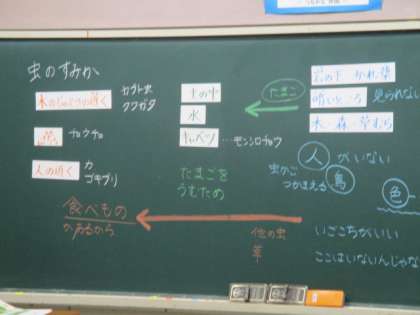 虫のすみか
木のじゅえきの近く
カブト虫
クワガタ
花
チョウチョ
人の近く
カ
ゴキブリ
食べもの
があるから
土の中
水
キャベツ
…モンシロチョウ
たまごを
うむため
たまご
岩の下 かれ葉
暗いところ
見られない
木・森 草むら
人がいない
虫かご
つかまえる
鳥
色
他の虫
草
いごこちがいい
ここはいないんじゃな